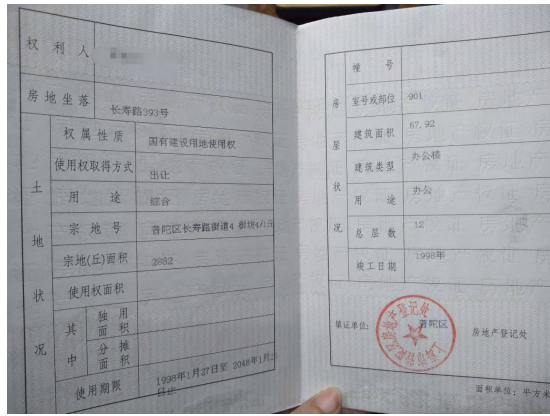 权利人
房地坐落
长寿路393号
土地状况
权属性质
国有建设用地使用权
使用权取得方式
出让
用途
综合
宗地号
普陀区长寿路街道4 街坊4/1丘
宗地(丘)面积
2882
使用权面积
其中
独用面积
分摊面积
使用期限
1998年1月27日至 2048年1月2
日止
房屋状况
幢号
室号或部位
901
建筑面积
67.92
建筑类型
办公楼
用途
办公
总层数
12
竣工日期
1998年
填证单位:
普陀区
房地产登记处
面积单位: 平方米